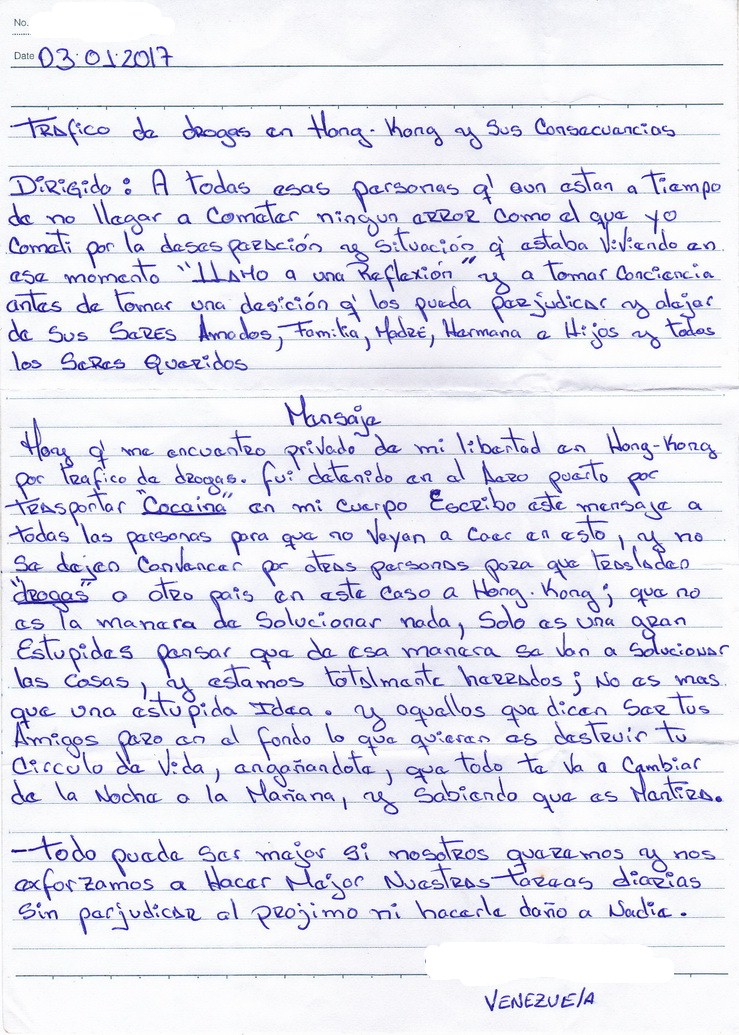 No.
Date 03.01.2017
TRAfico de drogas en Hong-Kong y Sus Consecuencias
DiRigido: A todas esas personas q' aun estan a Tiempo
de no llegar a Cometer ningun eRROR Como el que yo
Cometi por la desesparación y Situación q' estaba Viviendo en
ese momento "LLAMO a una Reflexión" y a tomar Conciencia
antes de tomar una desición q' los pueda perjudicar y alejar
de Sus SeRes Amados, Familia, MadRE, Hermana e Hijos y todos
los SeRes Queridos
Mensaje
Hoy q' me encuentro privado de mi libertad en Hong-Kong
por trafico de drogas. fui detenido en el Aero puerto por
TRASportar "Cocaina" en mi Cuerpo Escribo este mensaje a
todas las personas para que no Vayan a Caer en esto, y no
Se dejen Convencer por otras personas para que trasladen
"drogas" a otro pais en este Caso a Hong-Kong; que no
es la manera de Solucionar nada, Solo es una gran
Estupides pensar que de esa manera se Van a Solucionar
las Cosas, y estamos totalmente herrados; No es mas
que una estupida Idea. y aquellos que dicen Ser Tus
Amigos pero en el fondo lo que quieren es destruir tu
Circulo de Vida, engañandote, que todo te Va a Cambiar
de la Noche a la Mañana, y Sabiendo que es Mentira.
-todo puede Ser mejor Si nosotros queremos y nos
exforzamos a Hacer Mejor Nuestras tareas diarias
Sin perjudicar al projimo ni hacerle daño a Nadie.
VENEZUElA